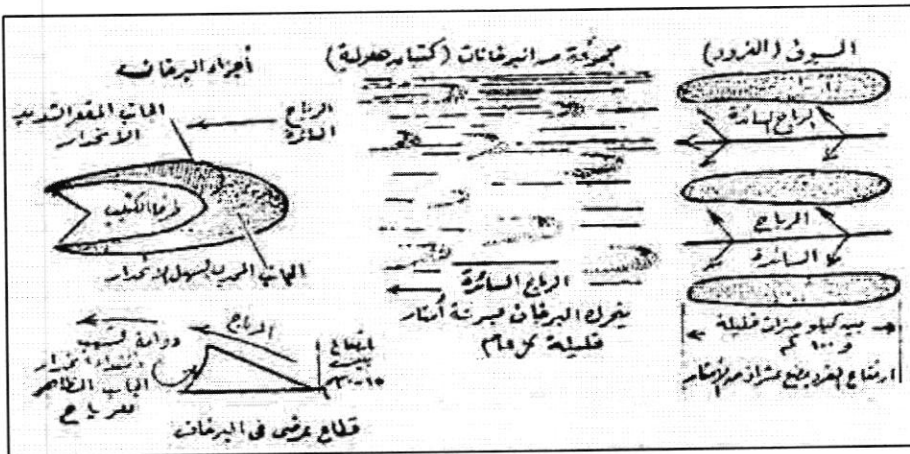 السيوف (الغرود)
الرياح السائدة
الرياح
السائدة
بين كيلو مترات قليلة
و ١٠٠ كم
ارتفاع الغرد بضع عشرات من الأمتار
مجموعة من البرخانات (كثبان هلالية)
الرياح السائدة
يتحرك البرخان بسرعة أمتار
قليلة كل عام
أجزاء البرخان
الجانب المقعر الشديد
الانحدار
الرياح
السائدة
طرفا الكثيب
الجانب المحدب سهل الانحدار
الرياح
دوامة تسبب
اشتداد انحدار
الجانب المظاهر
للرياح
ارتفاع
بين
١٥-٣٠م
قطاع عرضى فى البرخان